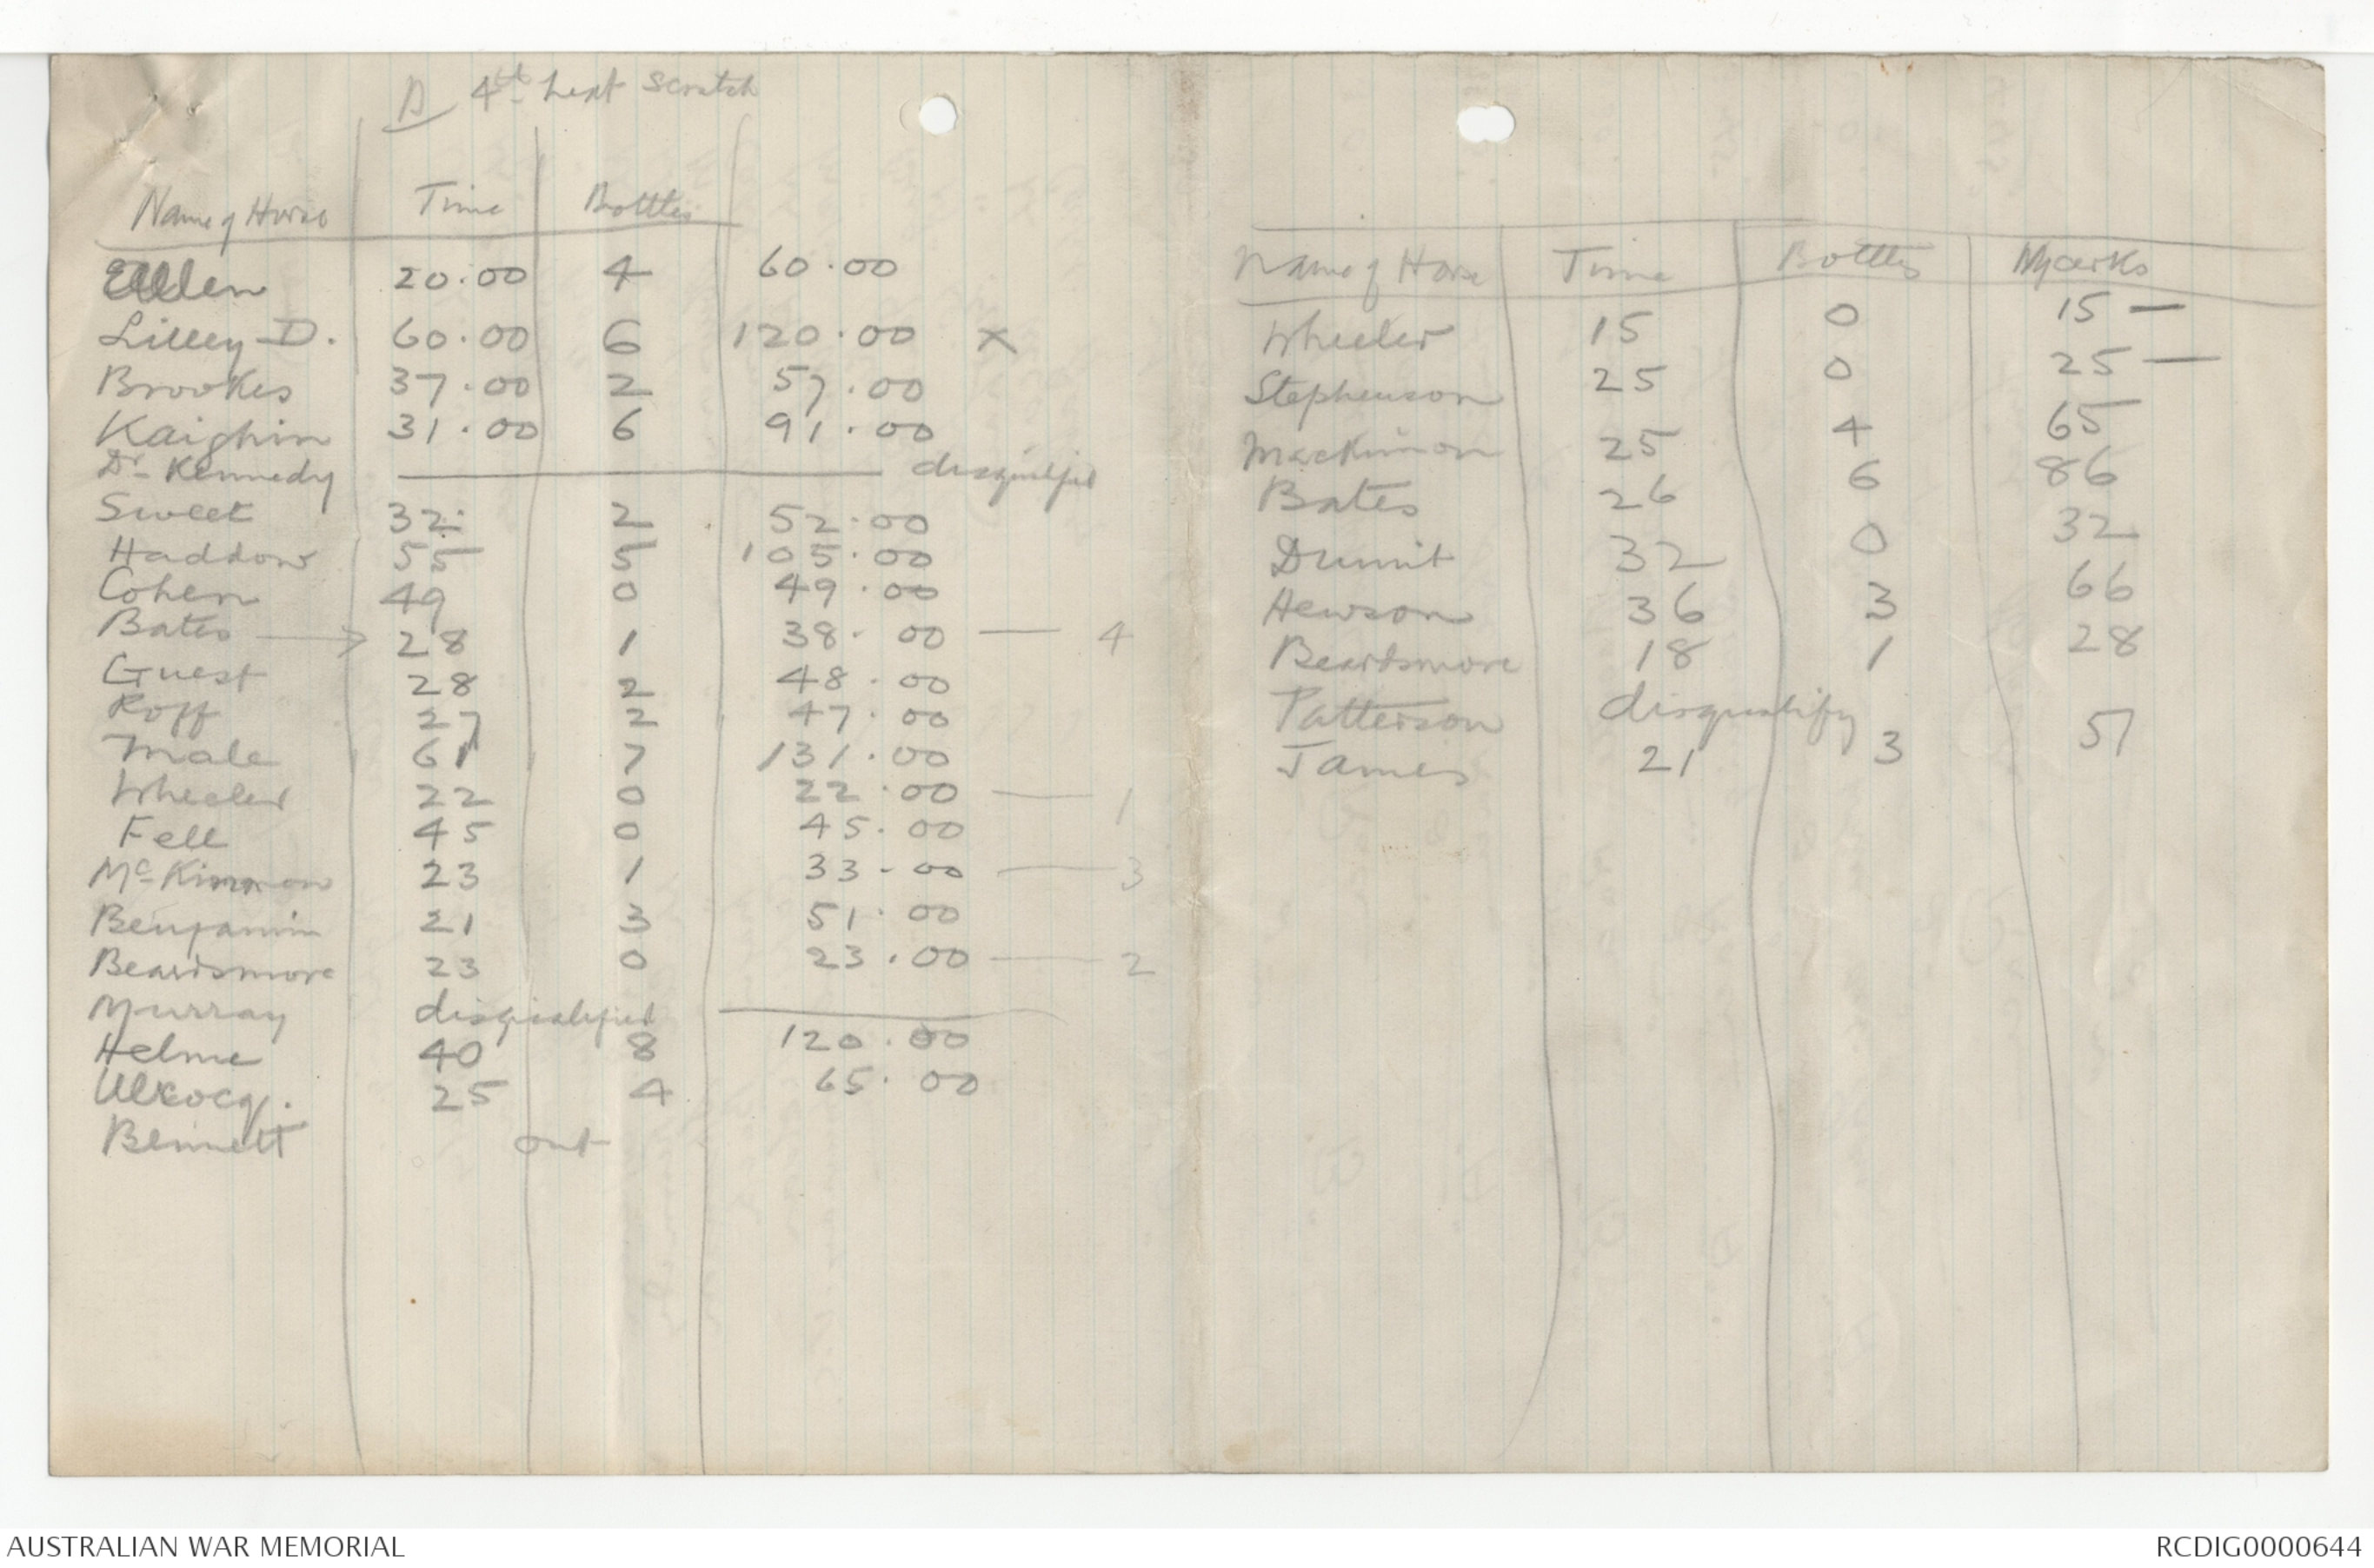 D 4th heat scratch
Name of Horse Time Bottles
20.00 4 60.00
Lilley D. 60.00 6 120.00 x
Brookes 37.00 2 57.00
Kaighin 31.00 6 91.00
Dr Kennedy — disqualified
Sweet 32. 2 52.00
Haddow 55 5 105.00
Cohen 49 0 49.00
Bates → 28 1 38.00 — 4
Guest 28 2 48.00
Roff 27 2 47.00
Male 61 7 131.00
Wheeler 22 0 22.00 — 1
Fell 45 0 45.00
McKinnon 23 1 33-00 — 3
Benjamin 21 3 51.00
Beardsmore 23 0 23.00 — 2
Murray disqualified —
Helme 40 8 120.00
25 4 65.00
Bennett out
Name of Horse Time Bottles Marks
Wheeler 15 0 15 —
Stephenson 25 0 25 —
Mackinnon 25 4 65
Bates 26 6 86
32 0 32
Hewson 36 3 66
Beardsmore 18 1 28
Patterson disqualify
James 21 3 51
AUSTRALIAN WAR MEMORIAL
RCDIG0000644